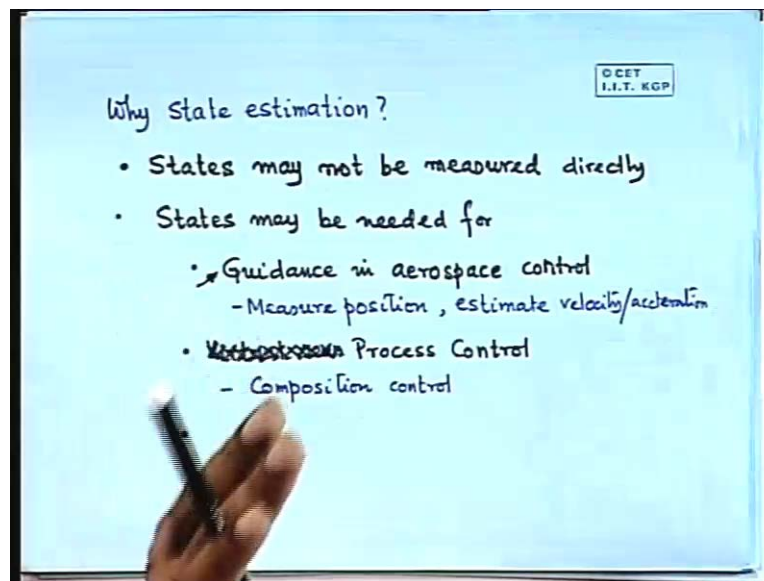 ©CET
I.I.T. KGP
Why State estimation?
• States may not be measured directly
• States may be needed for
• Guidance in aerospace control
- Measure position, estimate velocity/accleration
• Process Control
- Composition control